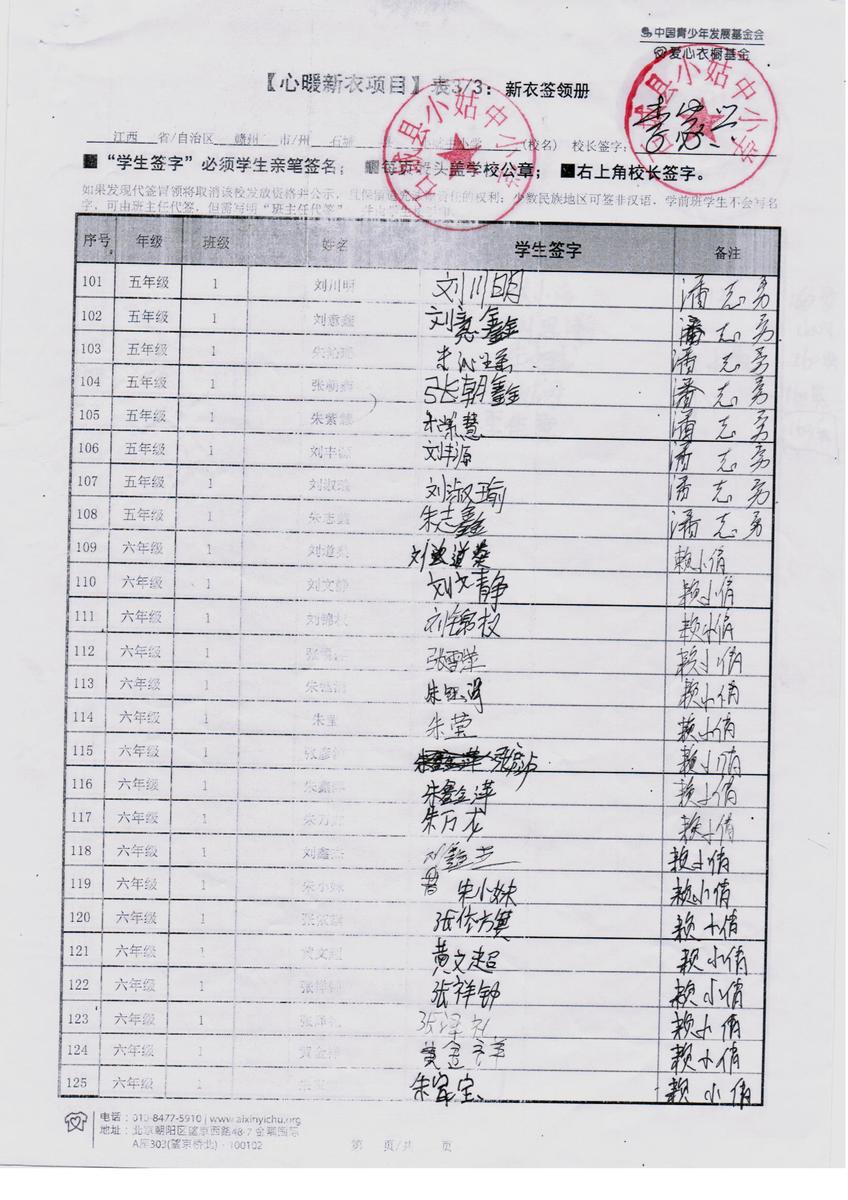 中国青少年发展基金会
爱心衣橱基金
【心暖新衣项目】表3/3：新衣签领册
江西 省/自治区 赣州 市/州 石城 小学 (校名) 校长签字：
石城县小姑中小学
■“学生签字”必须学生亲笔签名； ■每页 头盖学校公章； ■右上角校长签字。
如果发现代签冒领将取消该校发放资格并公示，且保留追究 责任的权利；少数民族地区可签非汉语，学前班学生不会写名
字，可由班主任代签，但需写明“班主任代签”，
序号 年级 班级 姓名 学生签字 备注
101 五年级 1 刘川明 刘川明 潘志勇
102 五年级 1 刘意鑫 刘意鑫 潘志勇
103 五年级 1 潘志勇
104 五年级 1 张朝鑫 张朝鑫 潘志勇
105 五年级 1 朱紫慧 朱紫慧 潘志勇
106 五年级 1 刘丰源 刘丰源 潘志勇
107 五年级 1 刘淑瑜 刘淑瑜 潘志勇
108 五年级 1 朱志鑫 朱志鑫 潘志勇
109 六年级 1 刘道燊 赖小倩
110 六年级 1 刘文静 刘文静 赖小倩
111 六年级 1 刘锦权 刘锦权 赖小倩
112 六年级 1 张雪萍 赖小倩
113 六年级 1 赖小倩
114 六年级 1 朱莹 朱莹 赖小倩
115 六年级 1 赖小倩
116 六年级 1 朱鑫萍 朱鑫萍 赖小倩
117 六年级 1 朱万龙 朱万龙 赖小倩
118 六年级 1 刘鑫 赖小倩
119 六年级 1 朱小妹 朱小妹 赖小倩
120 六年级 1 赖小倩
121 六年级 1 黄文超 黄文超 赖小倩
122 六年级 1 张祥钟 张祥钟 赖小倩
123 六年级 1 张泽礼 张泽礼 赖小倩
124 六年级 1 黄金祥 黄金祥 赖小倩
125 六年级 1 赖小倩
电话：010-8477-5910 | www.aixinyichu.org
地址：北京朝阳区望京西路48-7 金隅国际
A座303(望京桥北)·100102
第 页/共 页